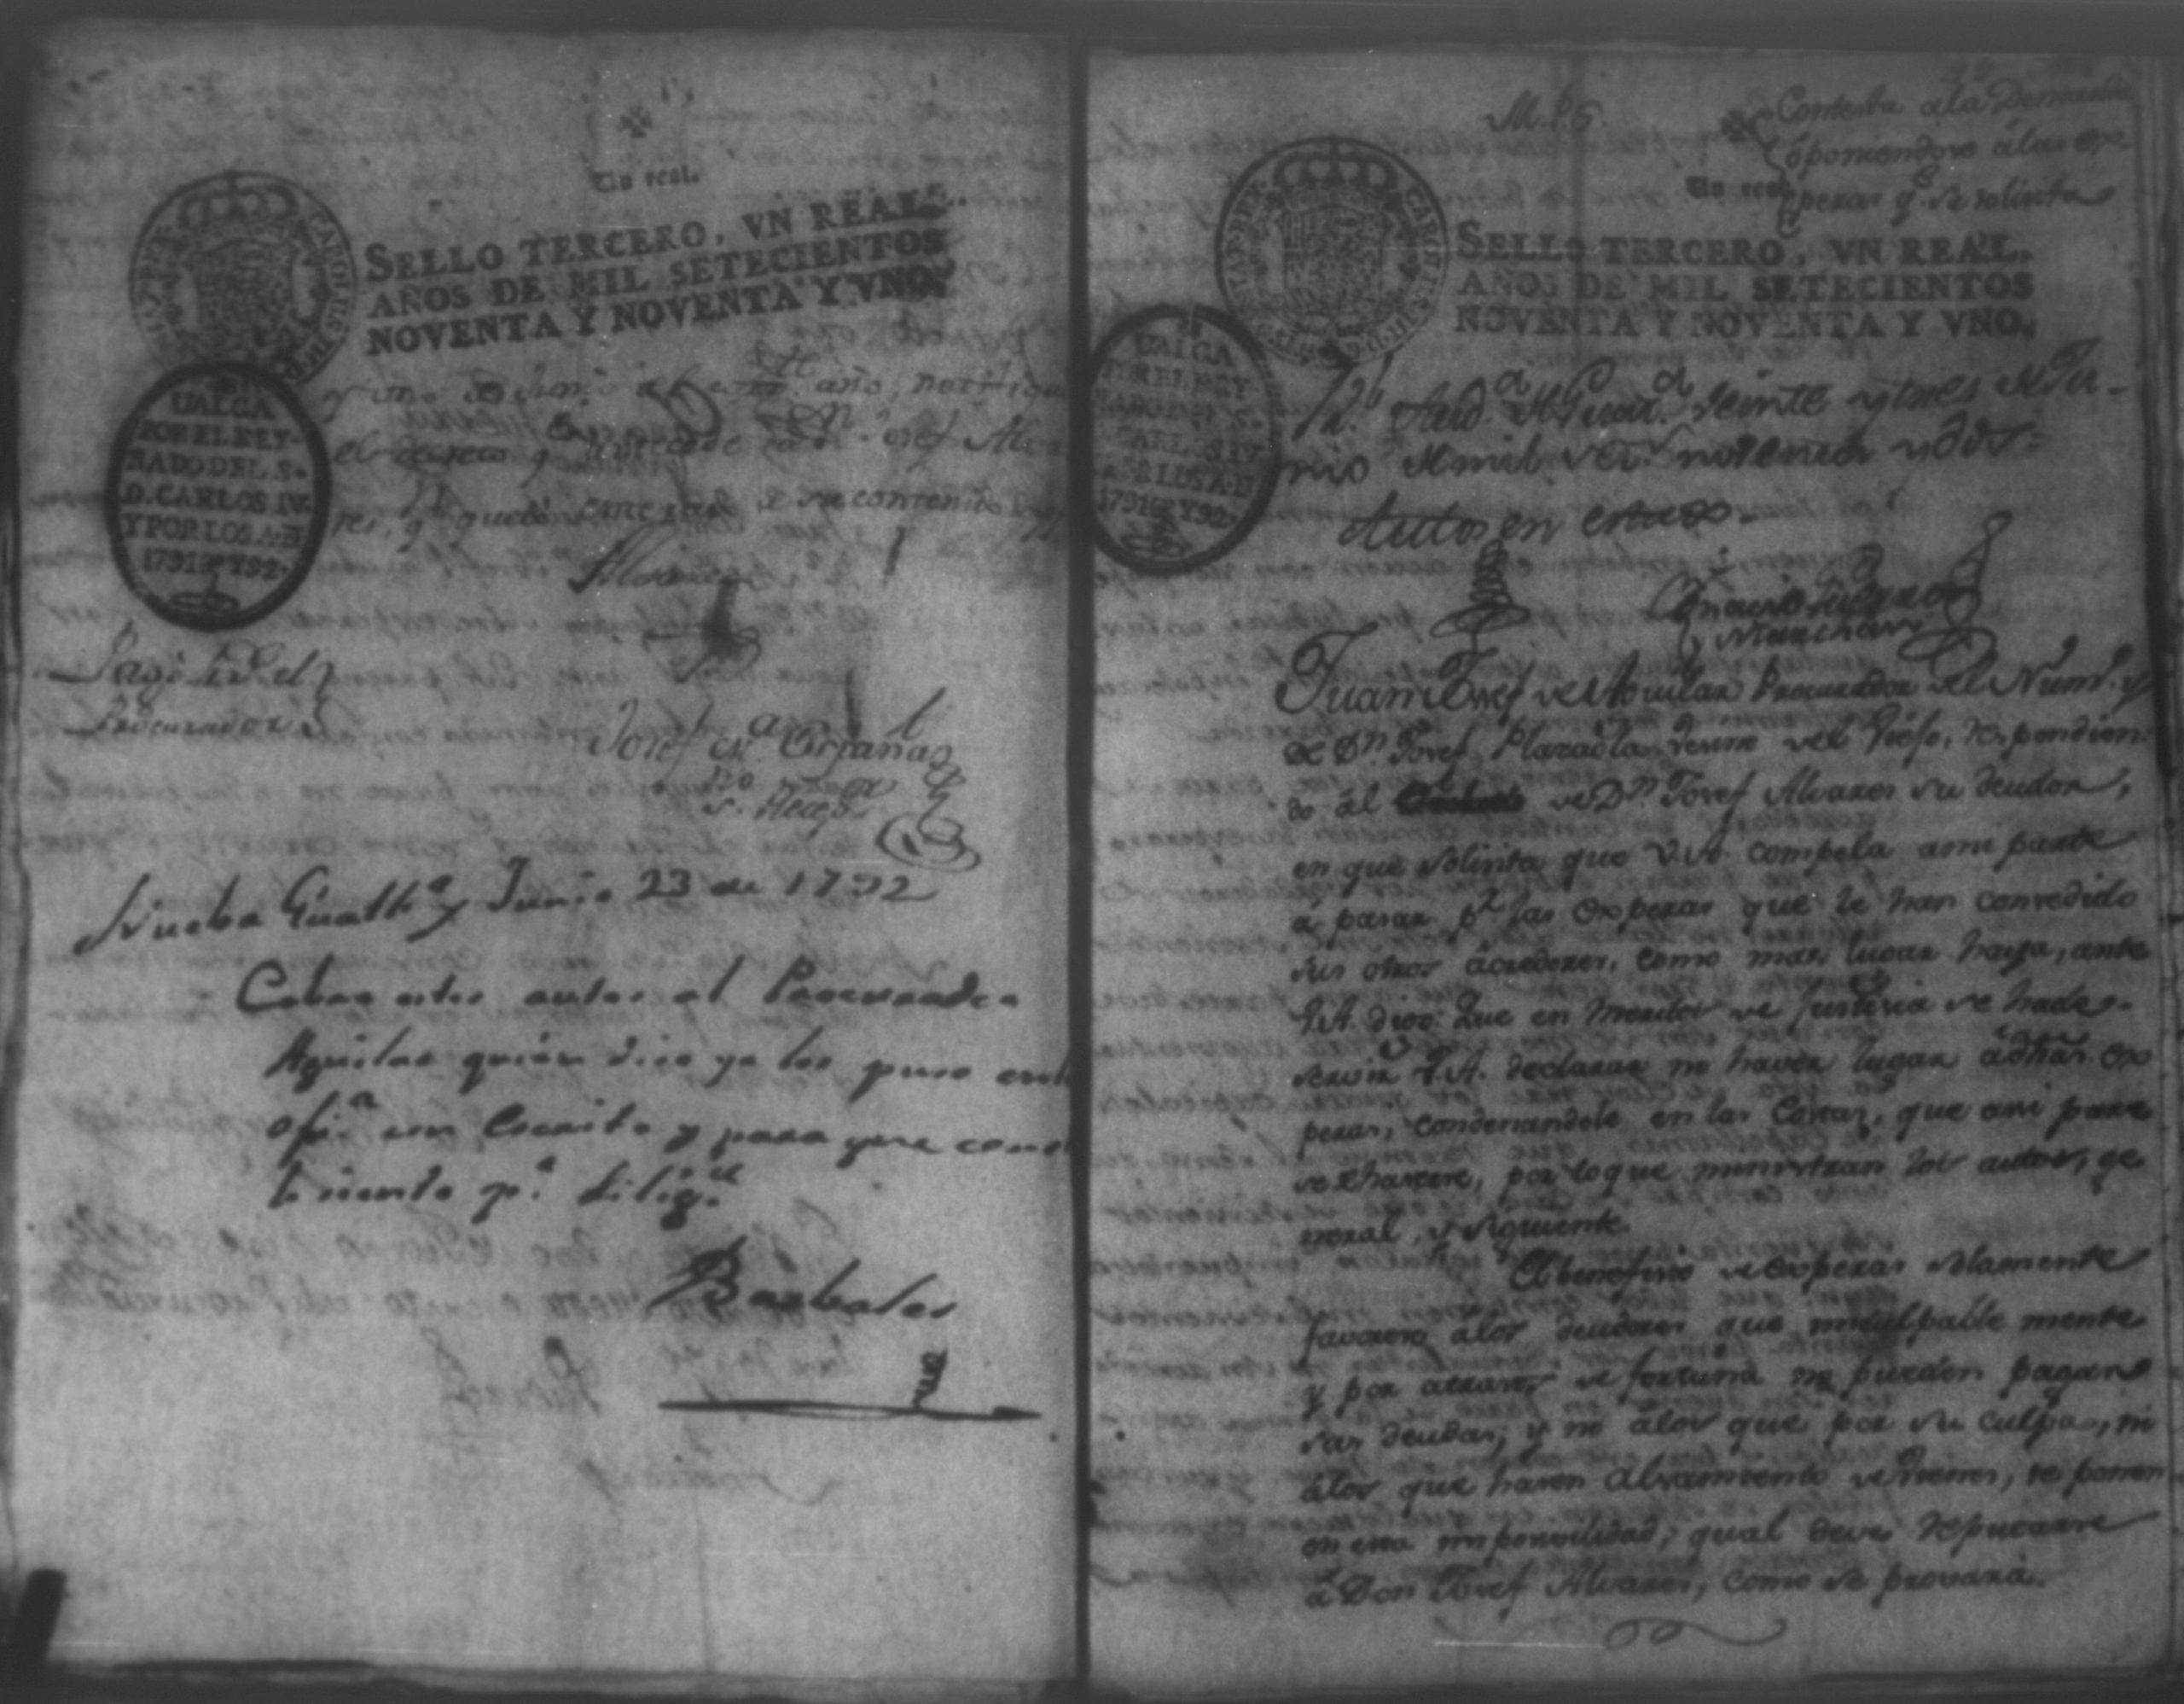 Un real.
SELLO TERCERO, VN REAL.
AÑOS DE MIL SETECIENTOS
NOVENTA Y NOVENTA Y VNO.
VALGA
POR EL REY-
NADO DEL S.
D. CARLOS IV.
Y POR LOS A. D
1791 Y 92.
y uno de Junio del año, notifiqué
el decreto q. antecede Josef Alva
res, qn. quedó enterado de su contenido
Alvarez
Pagó el
Procurador
Josef Ma. Cirpaña
Nueba Guatha. y Junio 23 de 1792
Cobre estos autos al Procurador
Aguilar quien dice ya los puso en la
ofna. con Escrito y para que conste
lo siento pr. diliga.
Barbales
M.P.S.
Contesta a la Demanda
oponiendose á las es-
peras qe. se solicita
Un real
SELLO TERCERO, VN REAL.
AÑOS DE MIL SETECIENTOS
NOVENTA Y NOVENTA Y VNO.
VALGA
POR EL REY
NADO DEL S.
D. CARLOS IV
Y POR LOS A. D
1791 Y 92.
Rl. Audª. de Guatª. veinte y tres de Ju-
nio de mil setˢ. noventa y dos=
Autos en estado.
Juan Josef de Aguilar Procurador del Numº. y
de Dn. Josef Plazaola, Vesino del Giefe, respondien-
do ál de Dn. Josef Alvares su deudor,
en que solicita que V.A. compela a mi parte
á pasar pr. las Esperas que le han consedido
sus otros ácredores, como mas lugar haya, ante
V.A. digo: Que en meritos de Justicia se ha de
servir V.A. declarar no haver lugar á dhas. es
peras, condenandole en las Costas, que asi parese
de Dharcere, por lo que ministran los autos, ge
neral, y siguiente.
El beneficio de esperas solamente
favorese álos deudores que inculpable mente
y por atrasos de fortuna no pueden pagar
sus deudas; y no álos que por su culpa, ni
álos que hasen alsamiento de vienes, se ponen
en esa imposivilidad; qual deve reputarse
á Don Josef Alvares, como se provará.